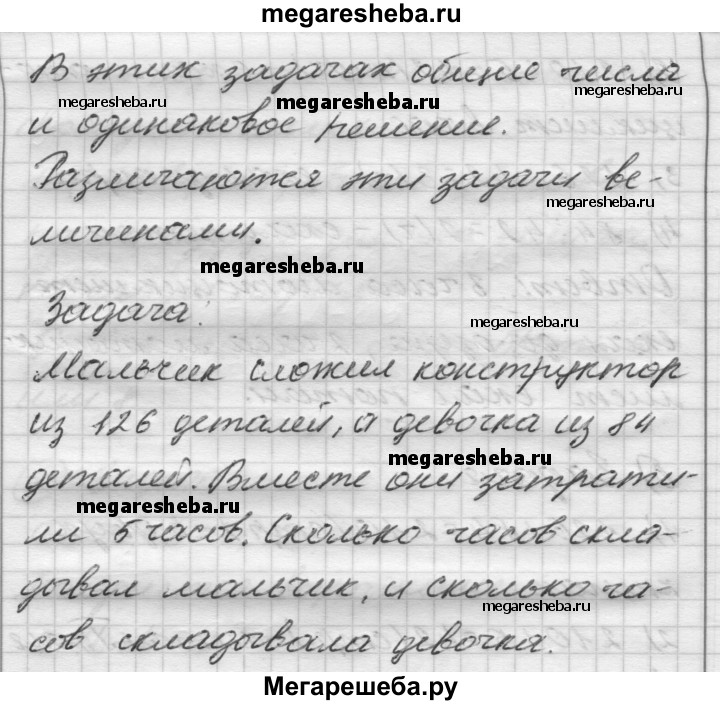 megaresheba.ru
В этих задачах общие числа
megaresheba.ru megaresheba.ru megaresheba.ru
и одинаковое решение.
Различаются эти задачи ве-
megaresheba.ru
личинами.
megaresheba.ru
Задача.
megaresheba.ru
Мальчик сложил конструктор
из 126 деталей, а девочка из 84
megaresheba.ru
деталей. Вместе они затрати-
megaresheba.ru
ли 5 часов. Сколько часов скла-
дывал мальчик, и сколько ча-
megaresheba.ru
сов складывала девочка.
Мегарешеба.ру